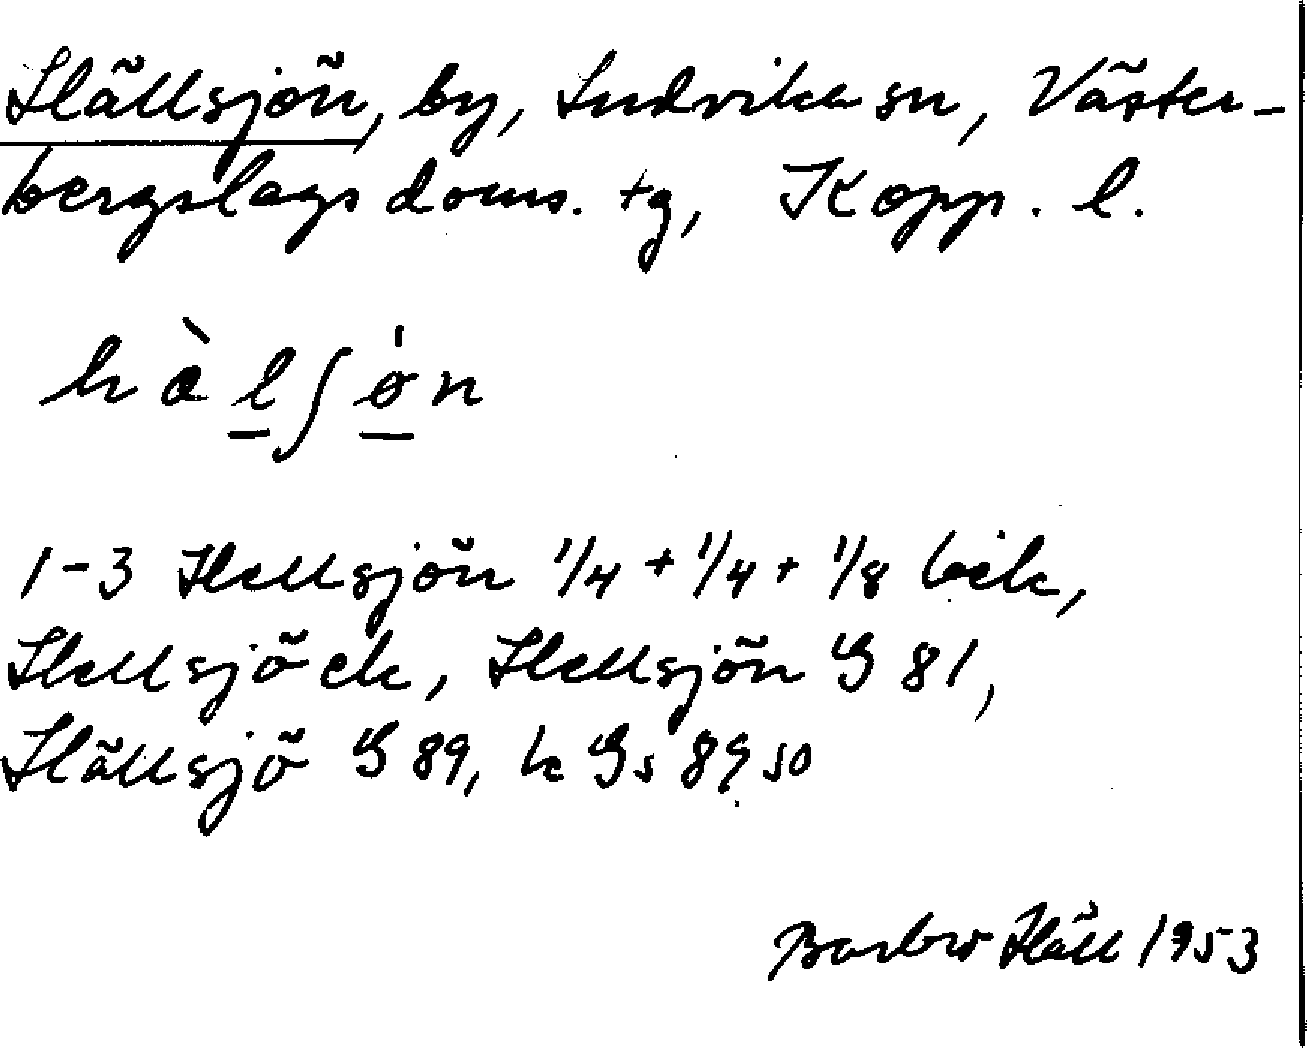 Hällsjön, by, Ludvika sn, Väster-
bergslags doms. tg, Kopp. l.
hàlʃøn
1-3 Hellsjön 1/4 + 1/4 + 1/8 
Hellsjöek, Hellsjön G 81,
Hällsjö G 89, k Gs 89 50
Barbro Häll 1953